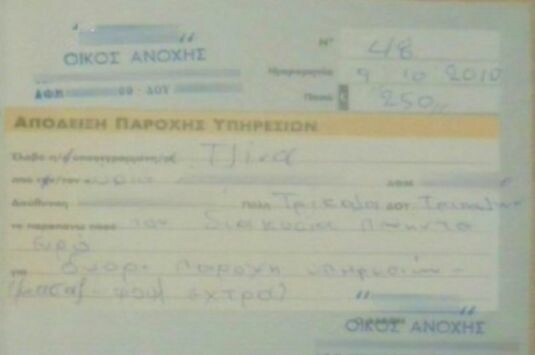 ΟΙΚΟΣ ΑΝΟΧΗΣ
ΑΦΜ 09 - ΔΟΥ
Νº 48
Ημερομηνία 9 10 2010
Ποσό € 250,,
ΑΠΟΔΕΙΞΗ ΠΑΡΟΧΗΣ ΥΠΗΡΕΣΙΩΝ
Έλαβα η/ο υπογεγραμμένη/ος Τζίνα
από την/τον κύριο ΑΦΜ
Διεύθυνση Πόλη Τρίκαλα ΔΟΥ Τρικάλων
το παραπάνω ποσό των διακοσίων πενήντα
ευρώ
για παροχή υπηρεσιών -
έχτρα)
ΟΙΚΟΣ ΑΝΟΧΗΣ